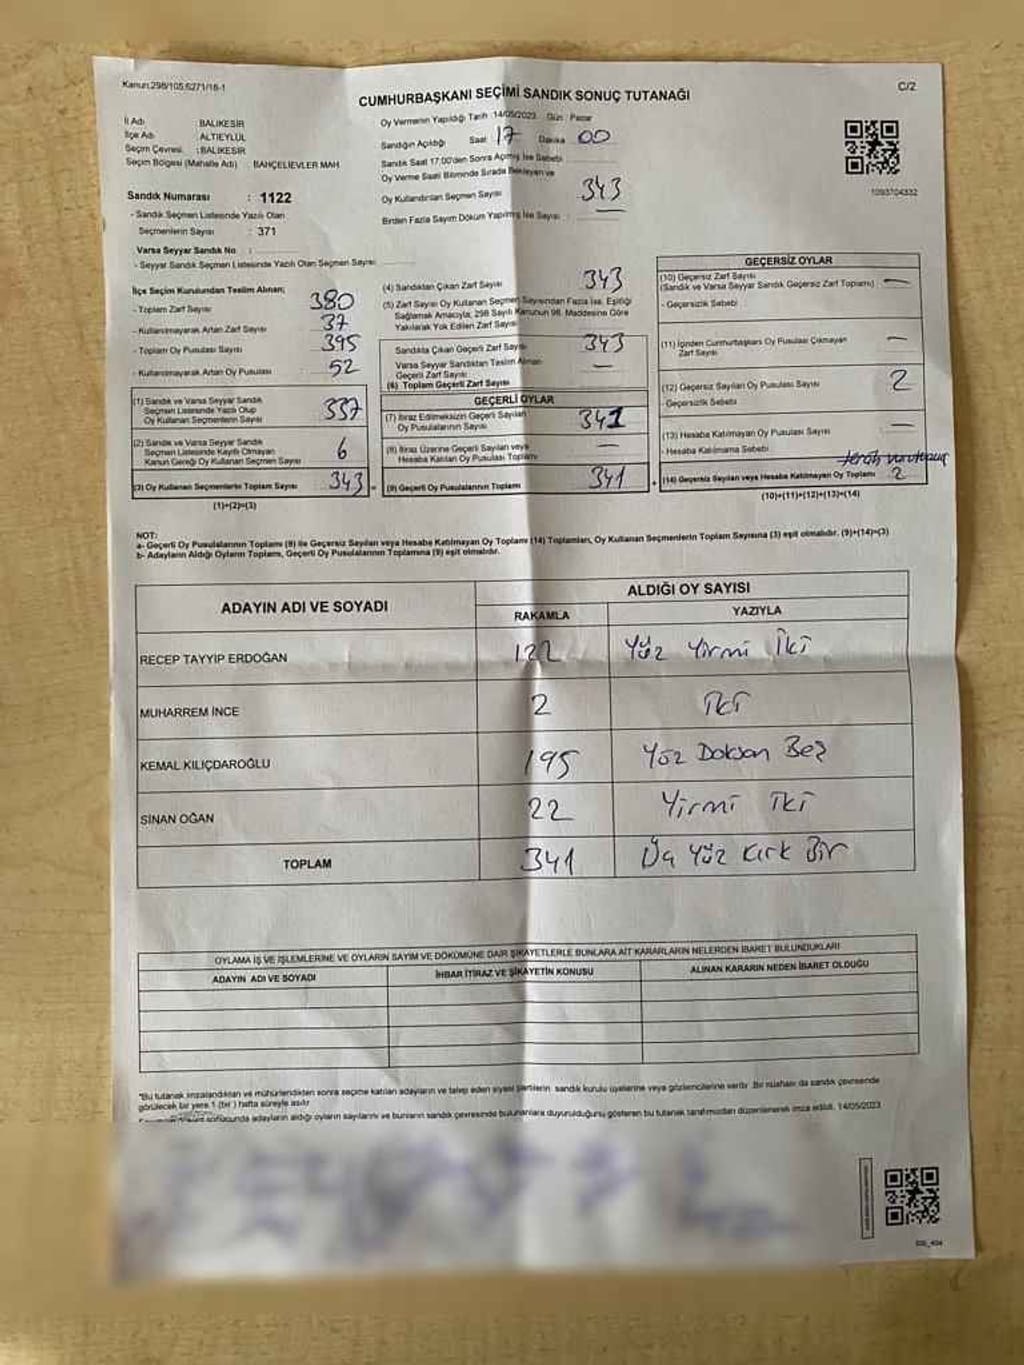 Kanun:298/105,6271/16-1
CUMHURBAŞKANI SEÇİMİ SANDIK SONUÇ TUTANAĞI
C/2
İl Adı : BALIKESİR
İlçe Adı : ALTIEYLÜL
Seçim Çevresi : BALIKESİR
Seçim Bölgesi (Mahalle Adı) : BAHÇELİEVLER MAH.
Sandık Numarası : 1122
- Sandık Seçmen Listesinde Yazılı Olan
Seçmenlerin Sayısı : 371
Varsa Seyyar Sandık No :
- Seyyar Sandık Seçmen Listesinde Yazılı Olan Seçmen Sayısı
Oy Vermenin Yapıldığı Tarih :14/05/2023 Gün : Pazar
Sandığın Açıldığı Saat 17 Dakika 00
Sandık Saat 17.00'den Sonra Açılmış İse Sebebi
Oy Verme Saati Bitiminde Sırada Bekleyen ve
Oy Kullandırılan Seçmen Sayısı 343
Birden Fazla Sayım Döküm Yapılmış İse Sayısı : —
1093704332
İlçe Seçim Kurulundan Teslim Alınan;
- Toplam Zarf Sayısı 380
- Kullanılmayarak Artan Zarf Sayısı 37
- Toplam Oy Pusulası Sayısı 395
- Kullanılmayarak Artan Oy Pusulası 52
(1) Sandık ve Varsa Seyyar Sandık
Seçmen Listesinde Yazılı Olup
Oy Kullanan Seçmenlerin Sayısı 337
(2) Sandık ve Varsa Seyyar Sandık
Seçmen Listesinde Kayıtlı Olmayan
Kanun Gereği Oy Kullanan Seçmen Sayısı 6
(3) Oy Kullanan Seçmenlerin Toplam Sayısı 343 =
(1)+(2)=(3)
(4) Sandıktan Çıkan Zarf Sayısı 343
(5) Zarf Sayısı Oy Kullanan Seçmen Sayısından Fazla İse, Eşitliği
Sağlamak Amacıyla; 298 Sayılı Kanunun 98. Maddesine Göre
Yakılarak Yok Edilen Zarf Sayısı
Sandıkta Çıkan Geçerli Zarf Sayısı 343
Varsa Seyyar Sandıktan Teslim Alınan
Geçerli Zarf Sayısı —
(6) Toplam Geçerli Zarf Sayısı
GEÇERLİ OYLAR
(7) İtiraz Edilmeksizin Geçerli Sayılan
Oy Pusulalarının Sayısı 341
(8) İtiraz Üzerine Geçerli Sayılan veya
Hesaba Katılan Oy Pusulası Toplamı —
(9) Geçerli Oy Pusulalarının Toplamı 341 +
GEÇERSİZ OYLAR
(10) Geçersiz Zarf Sayısı
(Sandık ve Varsa Seyyar Sandık Geçersiz Zarf Toplamı) —
- Geçersizlik Sebebi
(11) İçinden Cumhurbaşkanı Oy Pusulası Çıkmayan
Zarf Sayısı —
(12) Geçersiz Sayılan Oy Pusulası Sayısı 2
- Geçersizlik Sebebi
(13) Hesaba Katılmayan Oy Pusulası Sayısı —
- Hesaba Katılmama Sebebi
(14) Geçersiz Sayılan veya Hesaba Katılmayan Oy Toplamı 2
(10)+(11)+(12)+(13)=(14)
NOT:
a- Geçerli Oy Pusulalarının Toplamı (9) ile Geçersiz Sayılan veya Hesaba Katılmayan Oy Toplamı (14) Toplamları, Oy Kullanan Seçmenlerin Toplam Sayısına (3) eşit olmalıdır. (9)+(14)=(3)
b- Adayların Aldığı Oyların Toplamı, Geçerli Oy Pusulalarının Toplamına (9) eşit olmalıdır.
ADAYIN ADI VE SOYADI
ALDIĞI OY SAYISI
RAKAMLA YAZIYLA
RECEP TAYYİP ERDOĞAN 122 Yüz Yirmi İki
MUHARREM İNCE 2 İki
KEMAL KILIÇDAROĞLU 195 Yüz Doksan Beş
SİNAN OĞAN 22 Yirmi İki
TOPLAM 341 Üç Yüz Kırk Bir
OYLAMA İŞ VE İŞLEMLERİNE VE OYLARIN SAYIM VE DÖKÜMÜNE DAİR ŞİKAYETLERLE BUNLARA AİT KARARLARIN NELERDEN İBARET BULUNDUKLARI
ADAYIN ADI VE SOYADI İHBAR İTİRAZ VE ŞİKAYETİN KONUSU ALINAN KARARIN NEDEN İBARET OLDUĞU
"Bu tutanak imzalandıktan ve mühürlendikten sonra seçime katılan adayların ve talep eden siyasi partilerin sandık kurulu üyelerine veya gözlemcilerine verilir. Bir nüshası da sandık çevresinde
görülecek bir yere 1 (bir ) hafta süreyle asılır.
sonucunda adayların aldığı oyların sayılarını ve bunların sandık çevresinde bulunanlara duyurulduğunu gösteren bu tutanak tarafımızdan düzenlenerek imza edildi. 14/05/2023